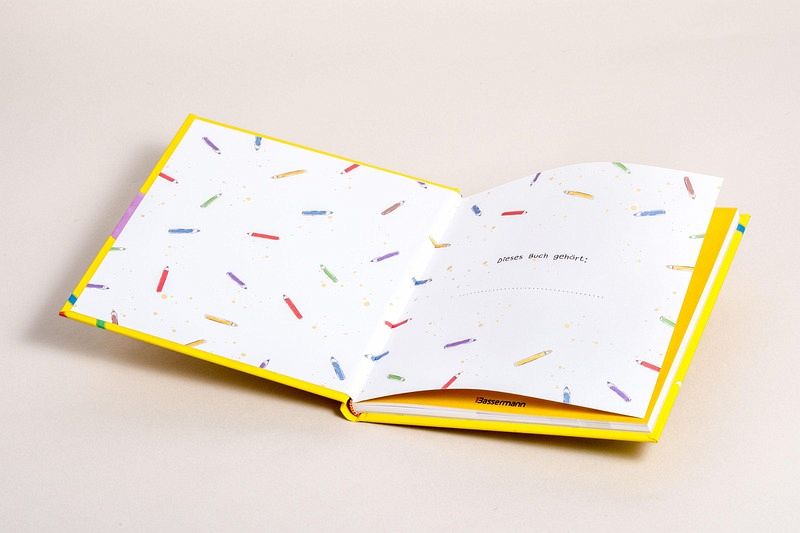 Dieses Buch gehört:
Bassermann